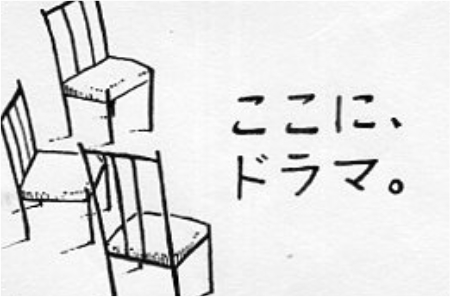 ここに、
ドラマ。